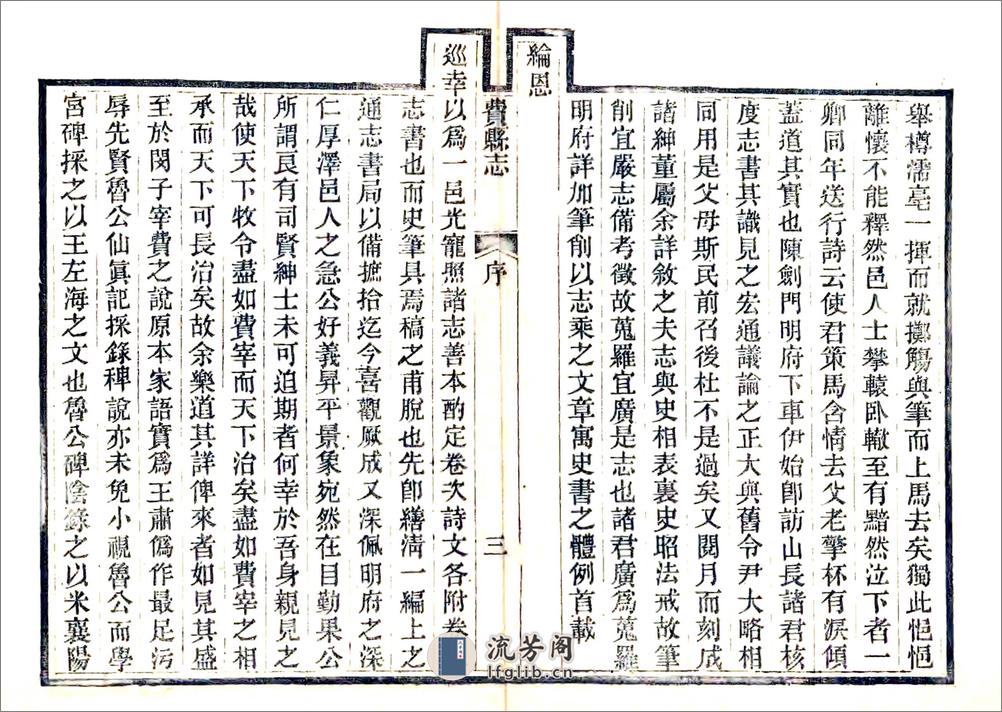 舉樽濡毫一揮而就擲觴與筆而上馬去矣獨此悒悒
離懷不能釋然邑人士攀轅臥轍至有黯然泣下者一
卿同年送行詩云使君策馬含情去父老擎杯有淚傾
蓋道其實也陳劍門明府下車伊始卽訪山長諸君核
度志書其識見之宏通議論之正大與舊令尹大略相
同用是父母斯民前召後杜不是過矣又閱月而刻成
諸紳董屬余詳敘之夫志與史相表裏史昭法戒故筆
削宜嚴志備考徵故蒐羅宜廣是志也諸君廣爲蒐羅
明府詳加筆削以志乘之文章寓史書之體例首載
綸恩
費縣志
序
三
巡幸以爲一邑光寵照諸志善本酌定卷次詩文各附卷
志書也而史筆具焉稿之甫脫也先卽繕淸一編上之
通志書局以備摭拾迄今喜觀厥成又深佩明府之深
仁厚澤邑人之急公好義昇平景象宛然在目勤果公
所謂良有司賢紳士未可迫期者何幸於吾身親見之
哉使天下牧令盡如費宰而天下治矣盡如費宰之相
承而天下可長治矣故余樂道其詳俾來者如見其盛
至於閔子宰費之說原本家語實爲王肅僞作最足污
辱先賢魯公仙眞記採錄稗說亦未免小視魯公而學
宮碑採之以王左海之文也魯公碑陰錄之以米襄陽
流芳阁
lfglib.cn